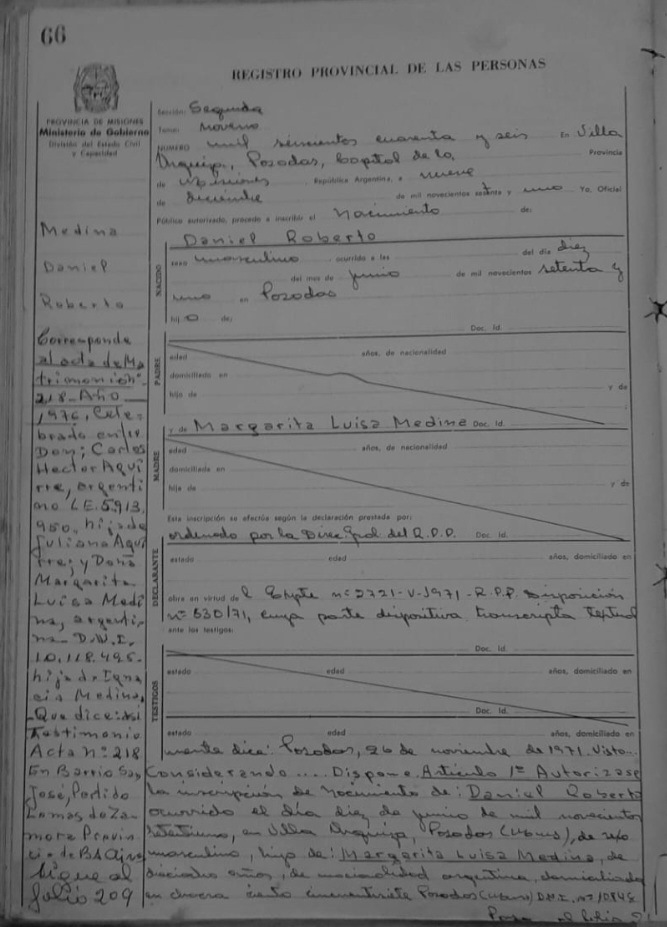 66
REGISTRO PROVINCIAL DE LAS PERSONAS
PROVINCIA DE MISIONES
Ministerio de Gobierno
División del Estado Civil
y Capacidad
Sección: Segunda
Tomo: noveno
NUMERO mil seiscientos cuarenta y seis En Villa
Urquiza, Posadas, Capital de la Provincia
de Misiones República Argentina, a nueve
de diciembre de mil novecientos setenta y uno Yo, Oficial
Público autorizado, procedo a inscribir el Nacimiento de:
Medina
Daniel
Roberto
NACIDO
Daniel Roberto
sexo masculino ocurrido a las del día diez
del mes de junio de mil novecientos setenta y
uno en Posadas
hijo de:
Doc. Id.
PADRE
edad años, de nacionalidad
domiciliado en y de
hijo de
MADRE
y de Margarita Luisa Medina Doc. Id.
edad años, de nacionalidad
domiciliada en y de
hija de
Esta inscripción se efectúa según la declaración prestada por:
DECLARANTE
ordenado por la Direc. Gral del R.P.P. Doc. Id.
estado edad años, domiciliado en
obra en virtud de l Expte nº 2721-V-1971-R.P.P. Disposición
nº 630/71, cuya parte dispositiva transcripta textual
ante los testigos:
TESTIGOS
Doc. Id.
estado edad años, domiciliado en
Doc. Id.
estado edad años, domiciliado en
mente dice: Posadas, 26 de noviembre de 1971. Visto...
Considerando.... Dispone. Artículo 1º Autorizase
la inscripción de nacimiento de: Daniel Roberto
ocurrido el día diez de junio de mil novecientos
setentiuno, en Villa Urquiza, Posadas (Mnes), de sexo
masculino, hijo de: Margarita Luisa Medina, de
años, de nacionalidad argentina, domiciliada
en chacra ciento cincuentisiete Posadas (Mnes) D.N.I. nº
Pasa al folio
Corresponde
al acta de Ma
trimonio nº
218-Año
1976, Cele-
brado entre
Don: Carlos
Hector Agui
rre, argenti
no L.E. 5.913.
950, hijo de
Juliana Agui
rre; y Doña
Margarita
Luisa Medi
na, argenti-
na-D.N.I.
10.118.495-
hija de Igna
cia Medina,
Que dice: así
Testimonio
Acta nº 218
En Barrio San
José, Partido
Lomas de Za-
mora Provin
cia de Bs Aires
Sigue al
folio 209